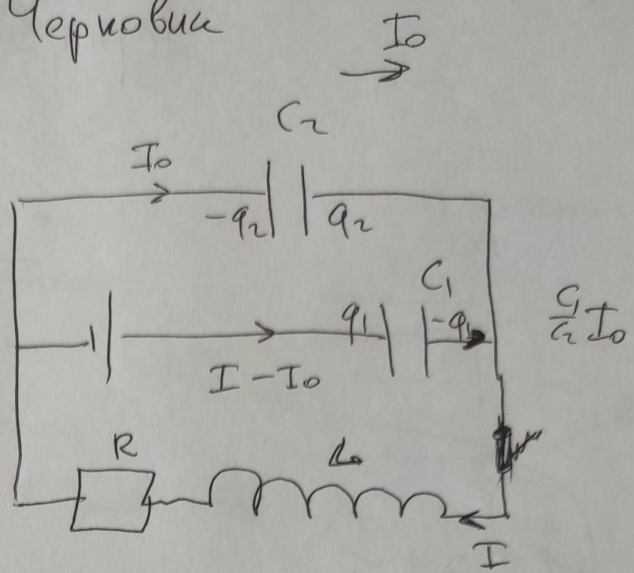 Черновик
I₀
C₂
I₀
-q₂ q₂
C₁
q₁ -q₁
C₁/C₂ I₀
I - I₀
R L₀
I